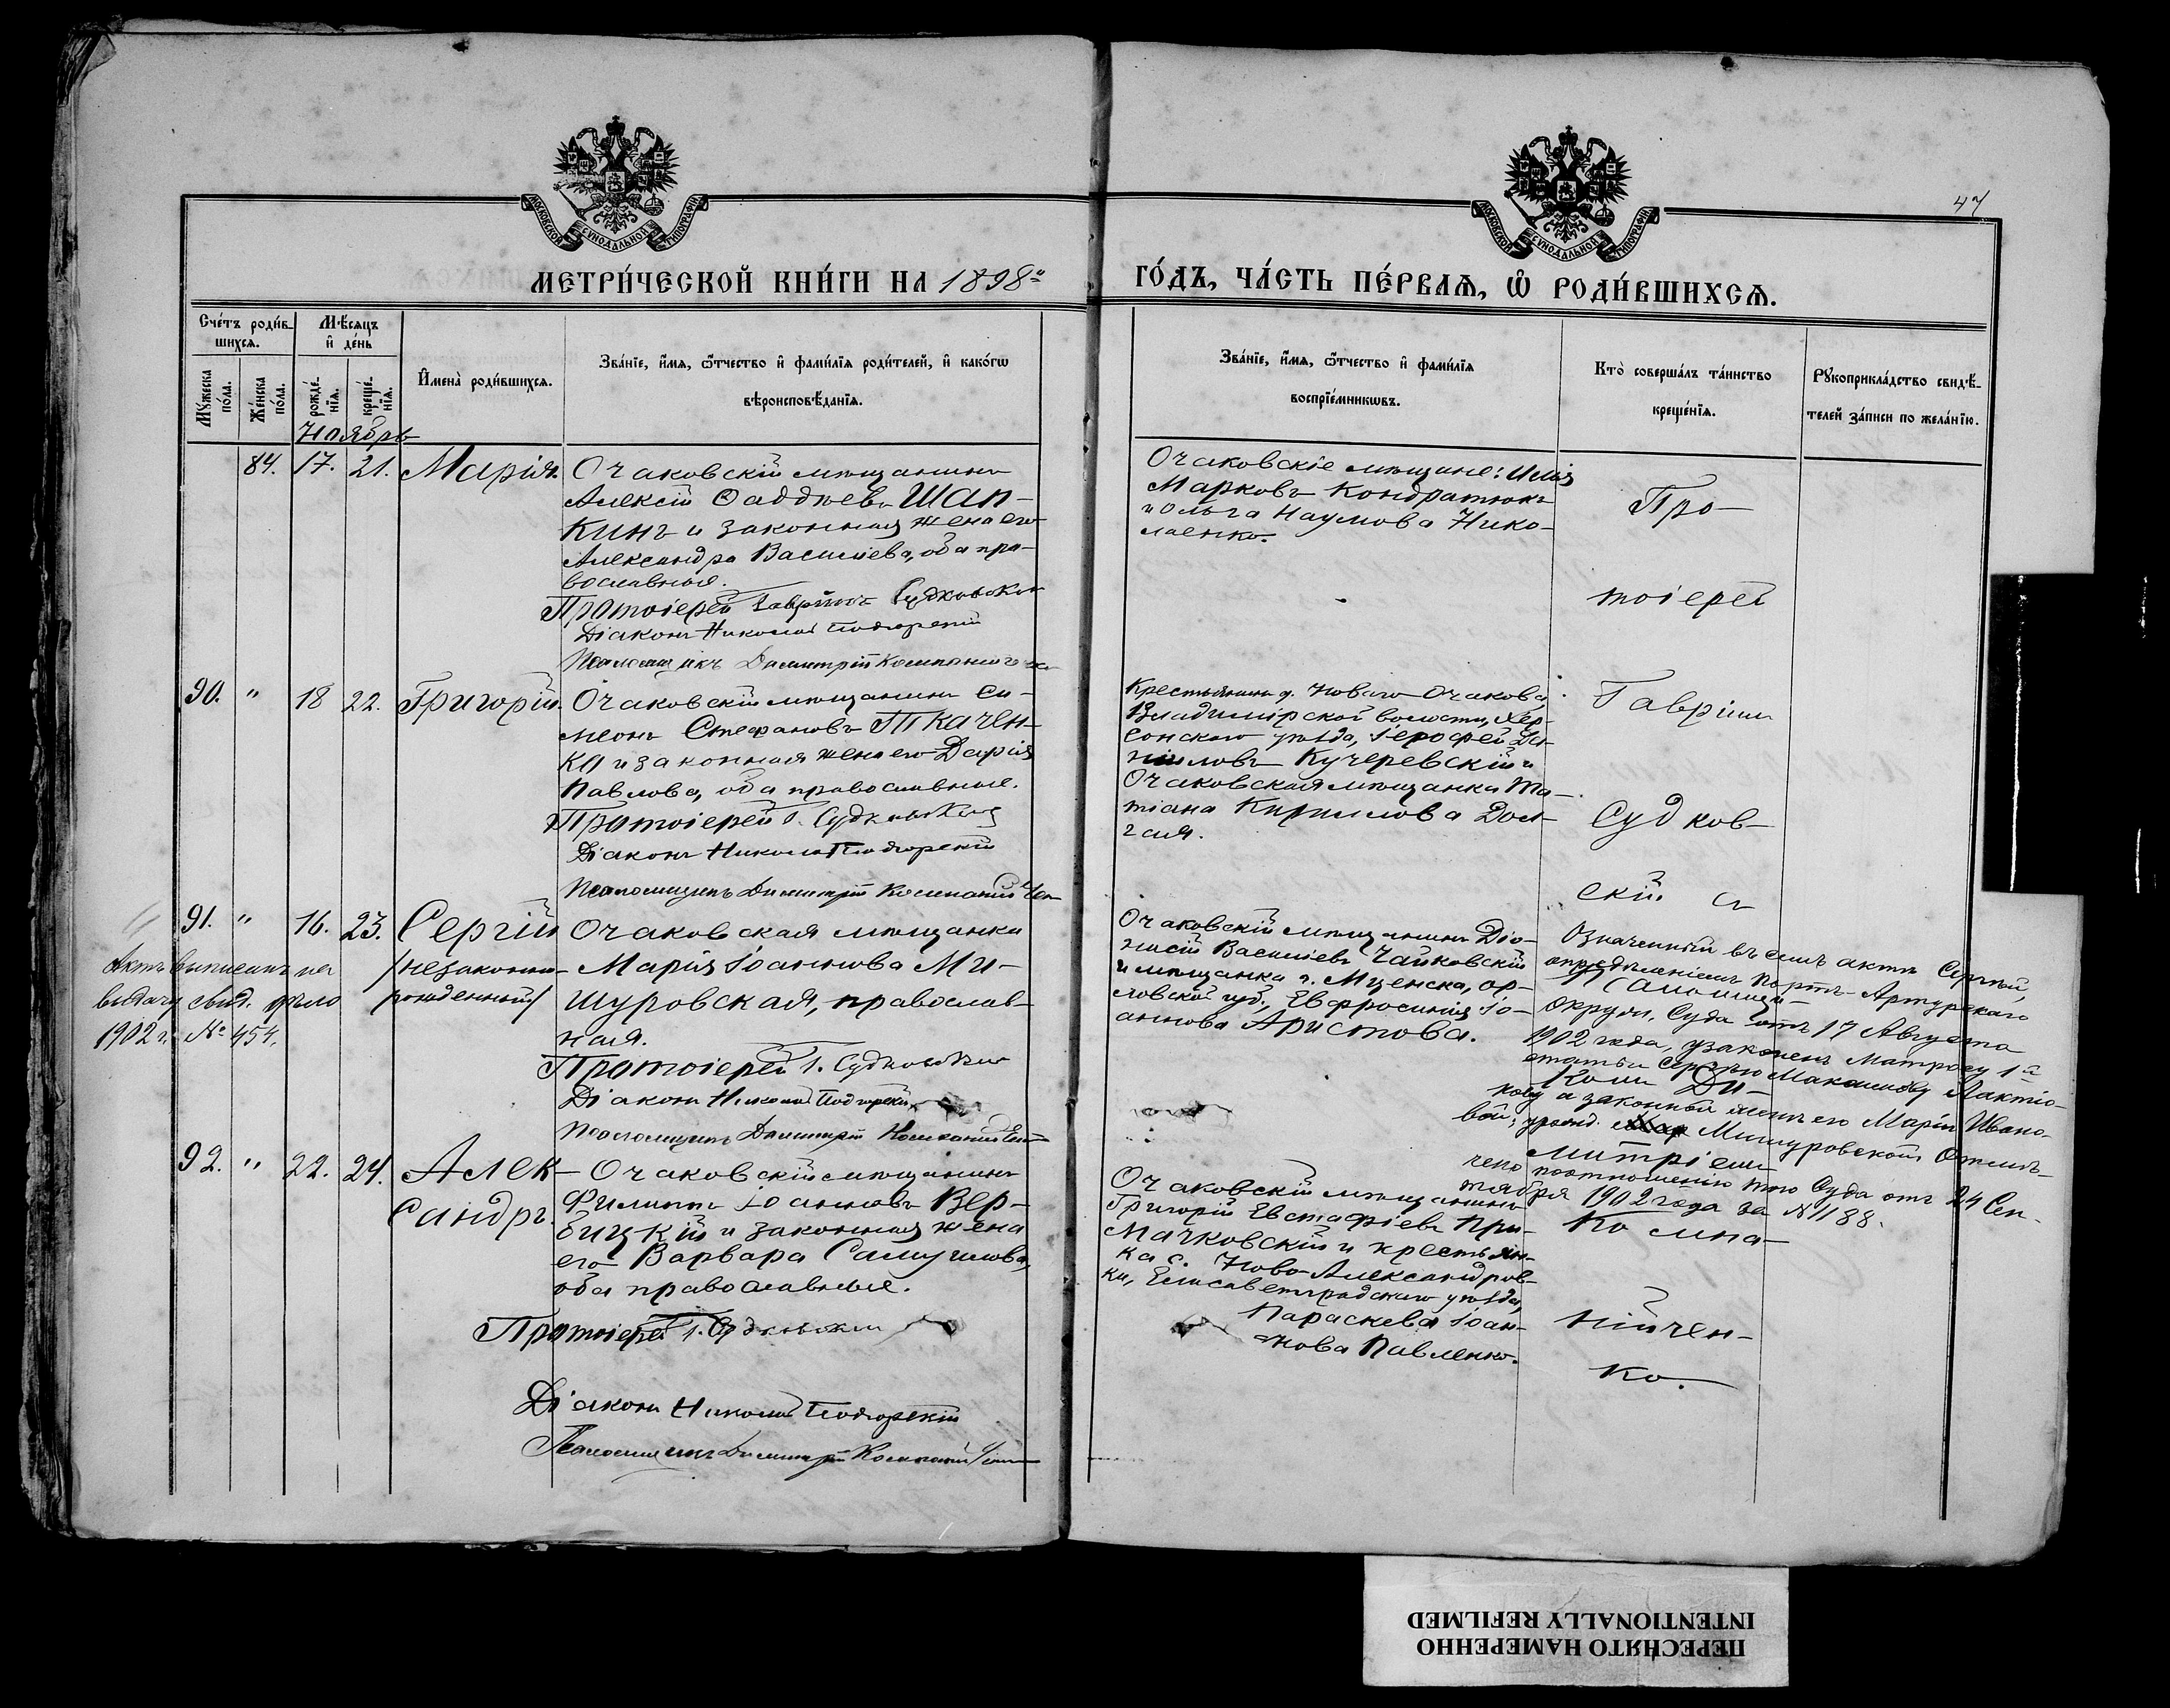 47
МОСКОВСКОЙ СѴНОДАЛЬНОЙ ТИПОГРАФІИ
МОСКОВСКОЙ СѴНОДАЛЬНОЙ ТИПОГРАФІИ
МЕТРИ́ЧЕСКОЙ КНИ́ГИ НА 1898й
ГО́ДЪ, ЧА́СТЬ ПЕ́РВАѦ, Ѡ РОДИ́ВШИХСѦ.
Сче́тъ роди́в-
шихсѧ.
Мѣ́сѧцъ
и де́нь
Мꙋ́жеска по́ла.
Же́нска по́ла.
рожде́-
нїѧ.
креще́-
нїѧ.
Имена̀ роди́вшихсѧ.
Зва́нїе, и́мѧ, ѻ́тчество и фами́лїѧ роди́телей, и како́гѡ
вѣроисповѣ́данїѧ.
Зва́нїе, и́мѧ, ѻ́тчество и фами́лїѧ
воспрїе́мникѡвъ.
Кто̀ соверша́лъ та́инство
креще́нїѧ.
Рꙋкоприкла́дство свидѣ́-
телей за́писи по жела́нїю.
Ноябрь
84. 17. 21. Марія.
Очаковскій мѣщанинъ
Алексій Ѳаддѣевъ Шап-
кинъ и законная жена его
Александра Васильева, оба пра-
вославные.
Протоіерей Гавріилъ Судковскій
Діаконъ Николай Подгорскій
Псаломщикъ Димитрій Компанійченко
Очаковскіе мѣщане: Илія
Марковъ Кондратюкъ
и Ольга Наумова Нико-
лаенко.
Про-
тоіерей
90. " 18 22. Григорій.
Очаковскій мѣщанинъ Си-
меонъ Стефановъ Ткачен-
ко и законная жена его Дарія
Павлова, оба православные.
Протоіерей Г. Судковскій
Діаконъ Николай Подгорскій
Псаломщикъ Димитрій Компанійчен
Крестьянинъ д. Новаго Очакова,
Владимірской волости, Хер-
сонскаго уѣзда, Іерофей Да-
ниловъ Кучеревскій и
Очаковская мѣщанка Та-
тіана Кириллова Дол-
гая.
Гавріилъ
Судков-
скій съ
91. " 16. 23. Сергій
/незаконно-
рожденный/
Актъ выписанъ на
выдачу свид. дѣло
1902 г. № 454.
Очаковская мѣщанка
Марія Іоаннова Ми-
шуровская, православ-
ная.
Протоіерей Г. Судковскій
Діаконъ Николай Подгорскій
Псаломщикъ Димитрій Компанійчен
Очаковскій мѣщанинъ Діо-
нисій Васильевъ Чайковскій
и мѣщанка г. Мценска, Ор-
ловской губ., Евфросинія Іо-
аннова Аристова.
Означенный въ семъ актѣ Сергій,
опредѣленіемъ Портъ-Артурскаго
Псаломщи-
Окружн. Суда отъ 17 Августа
1902 года, узаконенъ матросу 1й
статьи Сергѣю Максимову Лактіо-
комъ Ди-
нову и законной женѣ его Маріи Ивано-
вой, урожд. Мишуровской. Отмѣ-
митріемъ
чено по отношенію того Суда отъ 24 Сен-
тября 1902 года за № 1188.
92. " 22. 24. Алек-
сандръ.
Очаковскій мѣщанинъ
Филиппъ Іоанновъ Вер-
бицкій и законная жена
его Варвара Самуилова,
оба православные.
Протоіерей Г. Судковскій
Діаконъ Николай Подгорскій
Псаломщикъ Димитрій Компанійчен
Очаковскій мѣщанинъ
Григорій Евстафіевъ При-
мачковскій и крестьян-
ка с. Ново-Александров-
ки, Елисаветградскаго уѣзда,
Параскева Іоан-
нова Павленко.
Компа-
нійчен-
ко.
ПЕРЕСНЯТО НАМЕРЕННО
INTENTIONALLY REFILMED